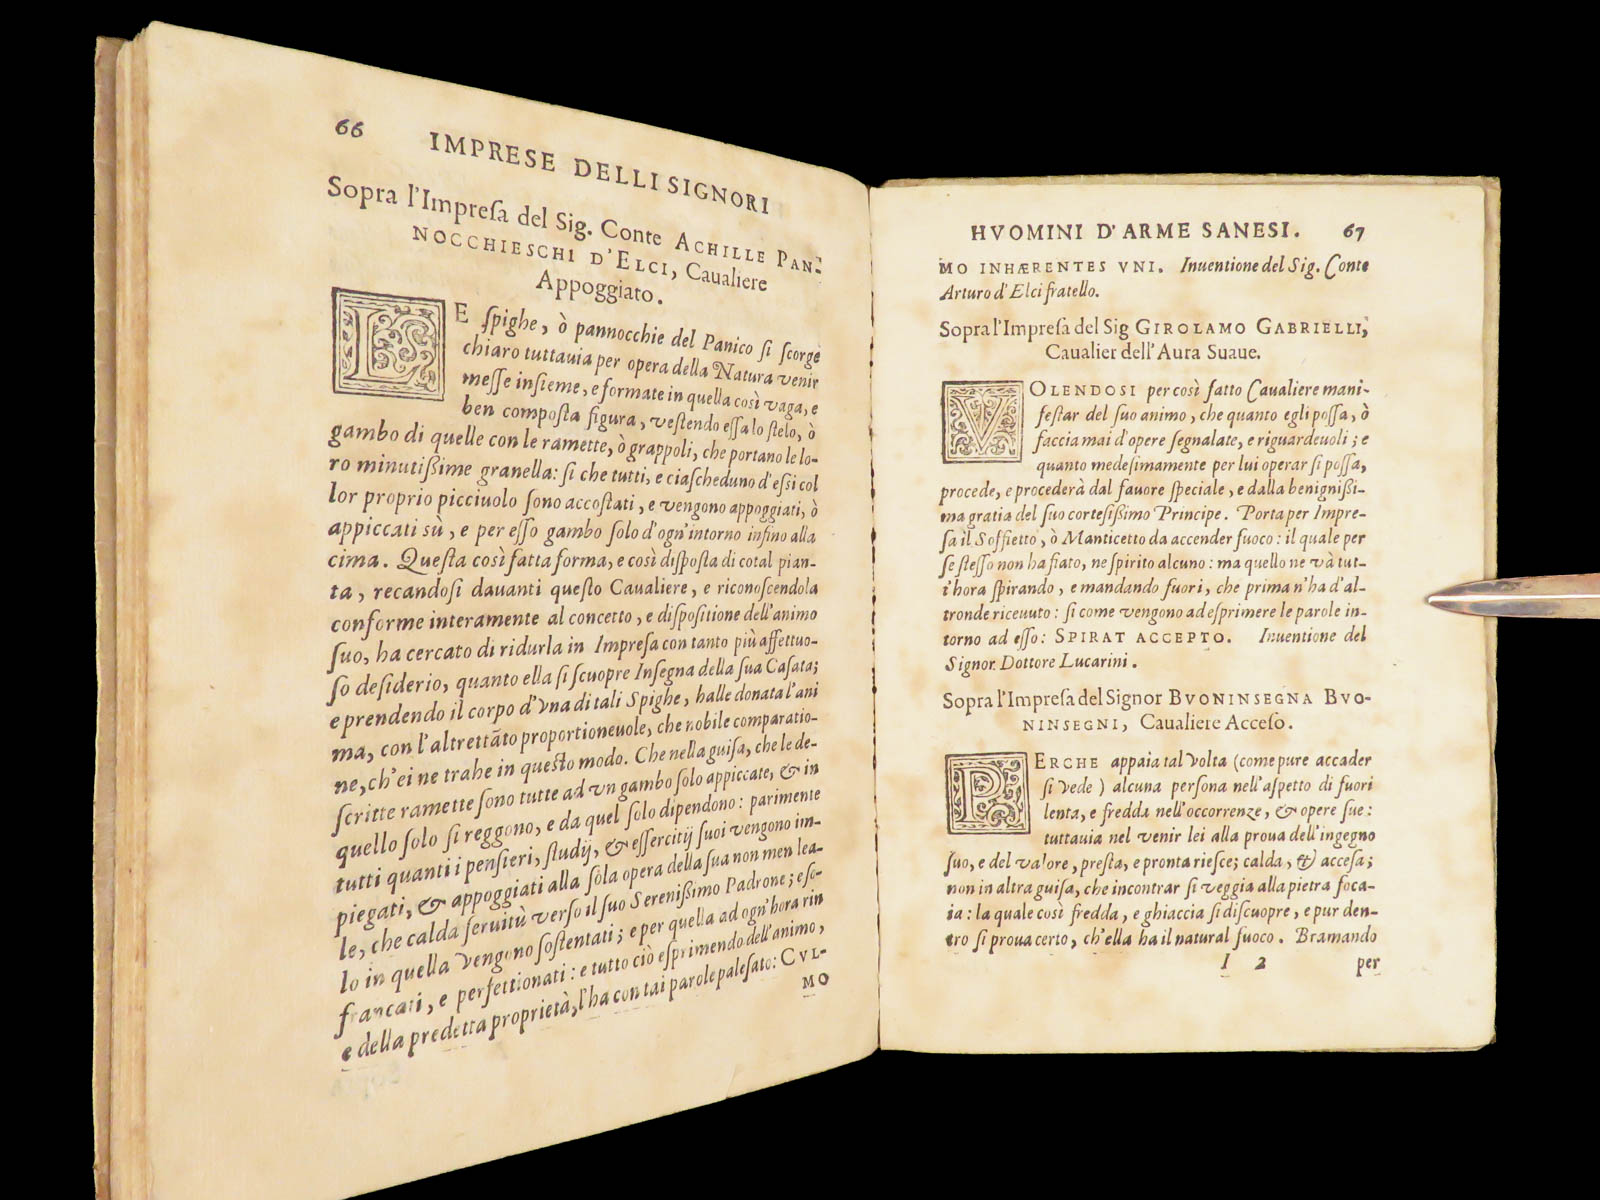 66
IMPRESE DELLI SIGNORI
Sopra l'Impreſa del Sig. Conte ACHILLE PAN-
NOCCHIESCHI D'ELCI, Caualiere
Appoggiato.
LE ſpighe, ò pannocchie del Panico ſi ſcorge
chiaro tuttauia per opera della Natura venir
meſſe inſieme, e formate in quella così vaga, e
ben compoſta figura, veſtendo eſſa lo ſtelo, ò
gambo di quelle con le ramette, ò grappoli, che portano le lo-
ro minutißime granella: ſi che tutti, e ciaſcheduno d'eſſi col
lor proprio picciuolo ſono accoſtati, e vengono appoggiati, ò
appiccati sù, e per eſſo gambo ſolo d'ogn'intorno inſino alla
cima. Queſta così fatta forma, e così diſpoſta di cotal pian-
ta, recandoſi dauanti queſto Caualiere, e riconoſcendola
conforme interamente al concetto, e diſpoſitione dell'animo
ſuo, ha cercato di ridurla in Impreſa con tanto più affettuo-
ſo deſiderio, quanto ella ſi ſcuopre Inſegna della ſua Caſata;
e prendendo il corpo d'vna di tali Spighe, halle donata l'ani
ma, con l'altrettãto proportioneuole, che nobile comparatio-
ne, ch'ei ne trahe in queſto modo. Che nella guiſa, che le de-
ſcritte ramette ſono tutte ad vn gambo ſolo appiccate, & in
quello ſolo ſi reggono, e da quel ſolo dipendono: parimente
tutti quanti i penſieri, ſtudij, & eſſercitij ſuoi vengono im-
piegati, & appoggiati alla ſola opera della ſua non men lea-
le, che calda ſeruitù verſo il ſuo Sereniſſimo Padrone; e ſo-
lo in quella vengono ſoſtentati; e per quella ad ogn'hora rin
francati, e perfettionati: e tutto ciò eſprimendo dell'animo,
e della predetta proprietà, l'ha con tai parole paleſato: CVL-
MO
HVOMINI D'ARME SANESI. 67
MO INHÆRENTES VNI. Inuentione del Sig. Conte
Arturo d'Elci fratello.
Sopra l'Impreſa del Sig GIROLAMO GABRIELLI,
Caualier dell'Aura Suaue.
VOLENDOSI per così fatto Caualiere mani-
feſtar del ſuo animo, che quanto egli poſſa, ò
faccia mai d'opere ſegnalate, e riguardeuoli; e
quanto medeſimamente per lui operar ſi poſſa,
procede, e procederà dal fauore ſpeciale, e dalla benignißi-
ma gratia del ſuo corteſißimo Principe. Porta per Impre-
ſa il Soffietto, ò Manticetto da accender fuoco: il quale per
ſe ſteſſo non ha fiato, ne ſpirito alcuno: ma quello ne và tut-
t'hora ſpirando, e mandando fuori, che prima n'ha d'al-
tronde riceuuto: ſi come vengono ad eſprimere le parole in-
torno ad eſſo: SPIRAT ACCEPTO. Inuentione del
Signor Dottore Lucarini.
Sopra l'Impreſa del Signor BVONINSEGNA BVO-
NINSEGNI, Caualiere Acceſo.
PERCHE appaia tal volta (come pure accader
ſi vede) alcuna perſona nell'aſpetto di fuori
lenta, e fredda nell'occorrenze, & opere ſue:
tuttauia nel venir lei alla proua dell'ingegno
ſuo, e del valore, preſta, e pronta rieſce; calda, & acceſa;
non in altra guiſa, che incontrar ſi veggia alla pietra foca-
ia: la quale così fredda, e ghiaccia ſi diſcuopre, e pur den-
tro ſi proua certo, ch'ella ha il natural fuoco. Bramando
I 2 per